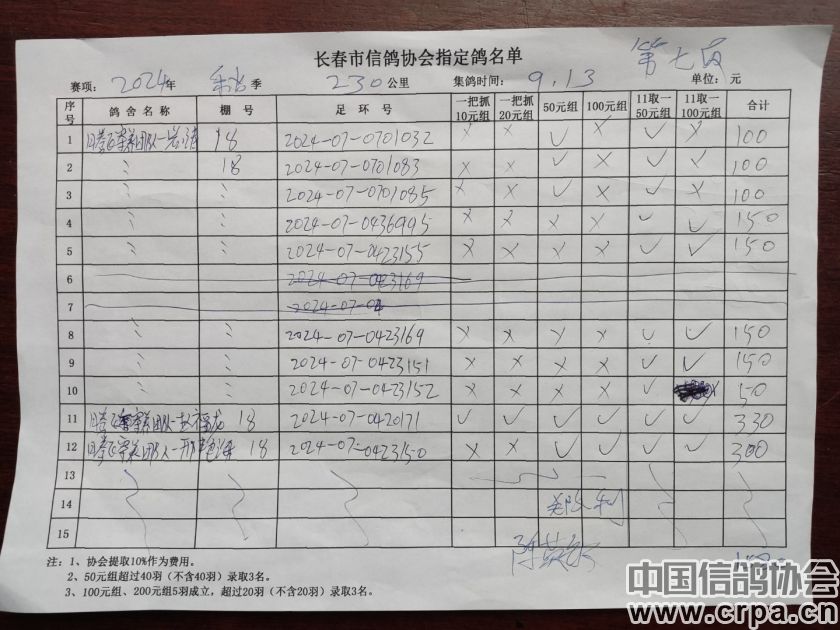 长春市信鸽协会指定鸽名单
第七页
赛项: 2024年 秋 季 230公里 集鸽时间: 9.13 单位: 元
序号 鸽舍名称 棚号 足环号 一把抓10元组 一把抓20元组 50元组 100元组 11取一50元组 11取一100元组 合计
1 18 2024-07-0701032 × × ✓ × ✓ × 100
2 〃 18 2024-07-0701083 × × ✓ × ✓ × 100
3 〃 〃 2024-07-0701085 × × ✓ × ✓ × 100
4 〃 〃 2024-07-0436995 × × × × ✓ ✓ 150
5 〃 〃 2024-07-0423155 × × × × ✓ ✓ 150
6 2024-07-0423169
7 2024-07-04
8 〃 〃 2024-07-0423169 × × × × ✓ ✓ 150
9 〃 〃 2024-07-0423151 × × × × ✓ ✓ 150
10 〃 〃 2024-07-0423152 × × × × ✓ × 50
11 18 2024-07-0420171 ✓ ✓ ✓ ✓ ✓ ✓ 330
12 18 2024-07-0423150 × × ✓ ✓ ✓ ✓ 300
13
14
15
注: 1、协会提取10%作为费用。
2、50元组超过40羽（不含40羽）录取3名。
3、100元组、200元组5羽成立，超过20羽（不含20羽）录取3名。
中国信鸽协会
www.crpa.cn